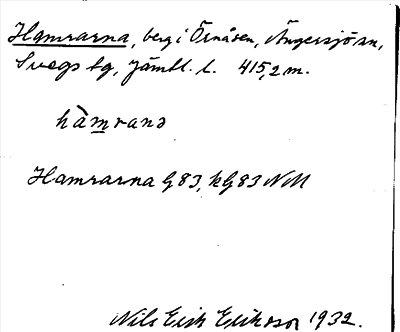 Hamrarna, berg i Örnåsen, Ängersjö sn,
Svegs tg, Jämtl. l. 415,2 m.
hàmrana
Hamrarna G 83, kG 83 NM
Nils Erik Erikson 1932.